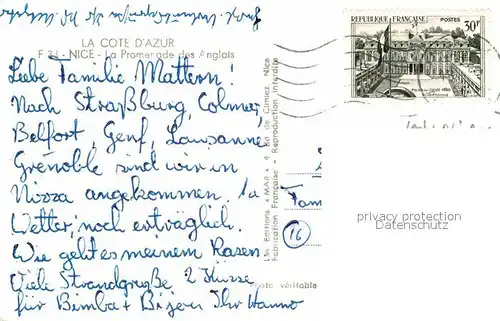 LA COTE D'AZUR
F 31 - NICE - La Promenade des Anglais
Liebe Familie Mattern!
Nach Straßburg, Colmar,
Belfort, Genf, Lausanne,
Grenoble sind wir in
Nizza angekommen. Ia
Wetter, noch erträglich.
Wie geht es meinem Rasen
Viele Strandgrüße 2 Küsse
für Bimba + Bijou Ihr Hanno
Les Editions "MAR" 4, Bd de Cimiez, Nice
Fabrication Française - Reproduction Interdite
véritable
REPUBLIQUE FRANÇAISE
POSTES
30F
Fam
16
privacy protection
Datenschutz